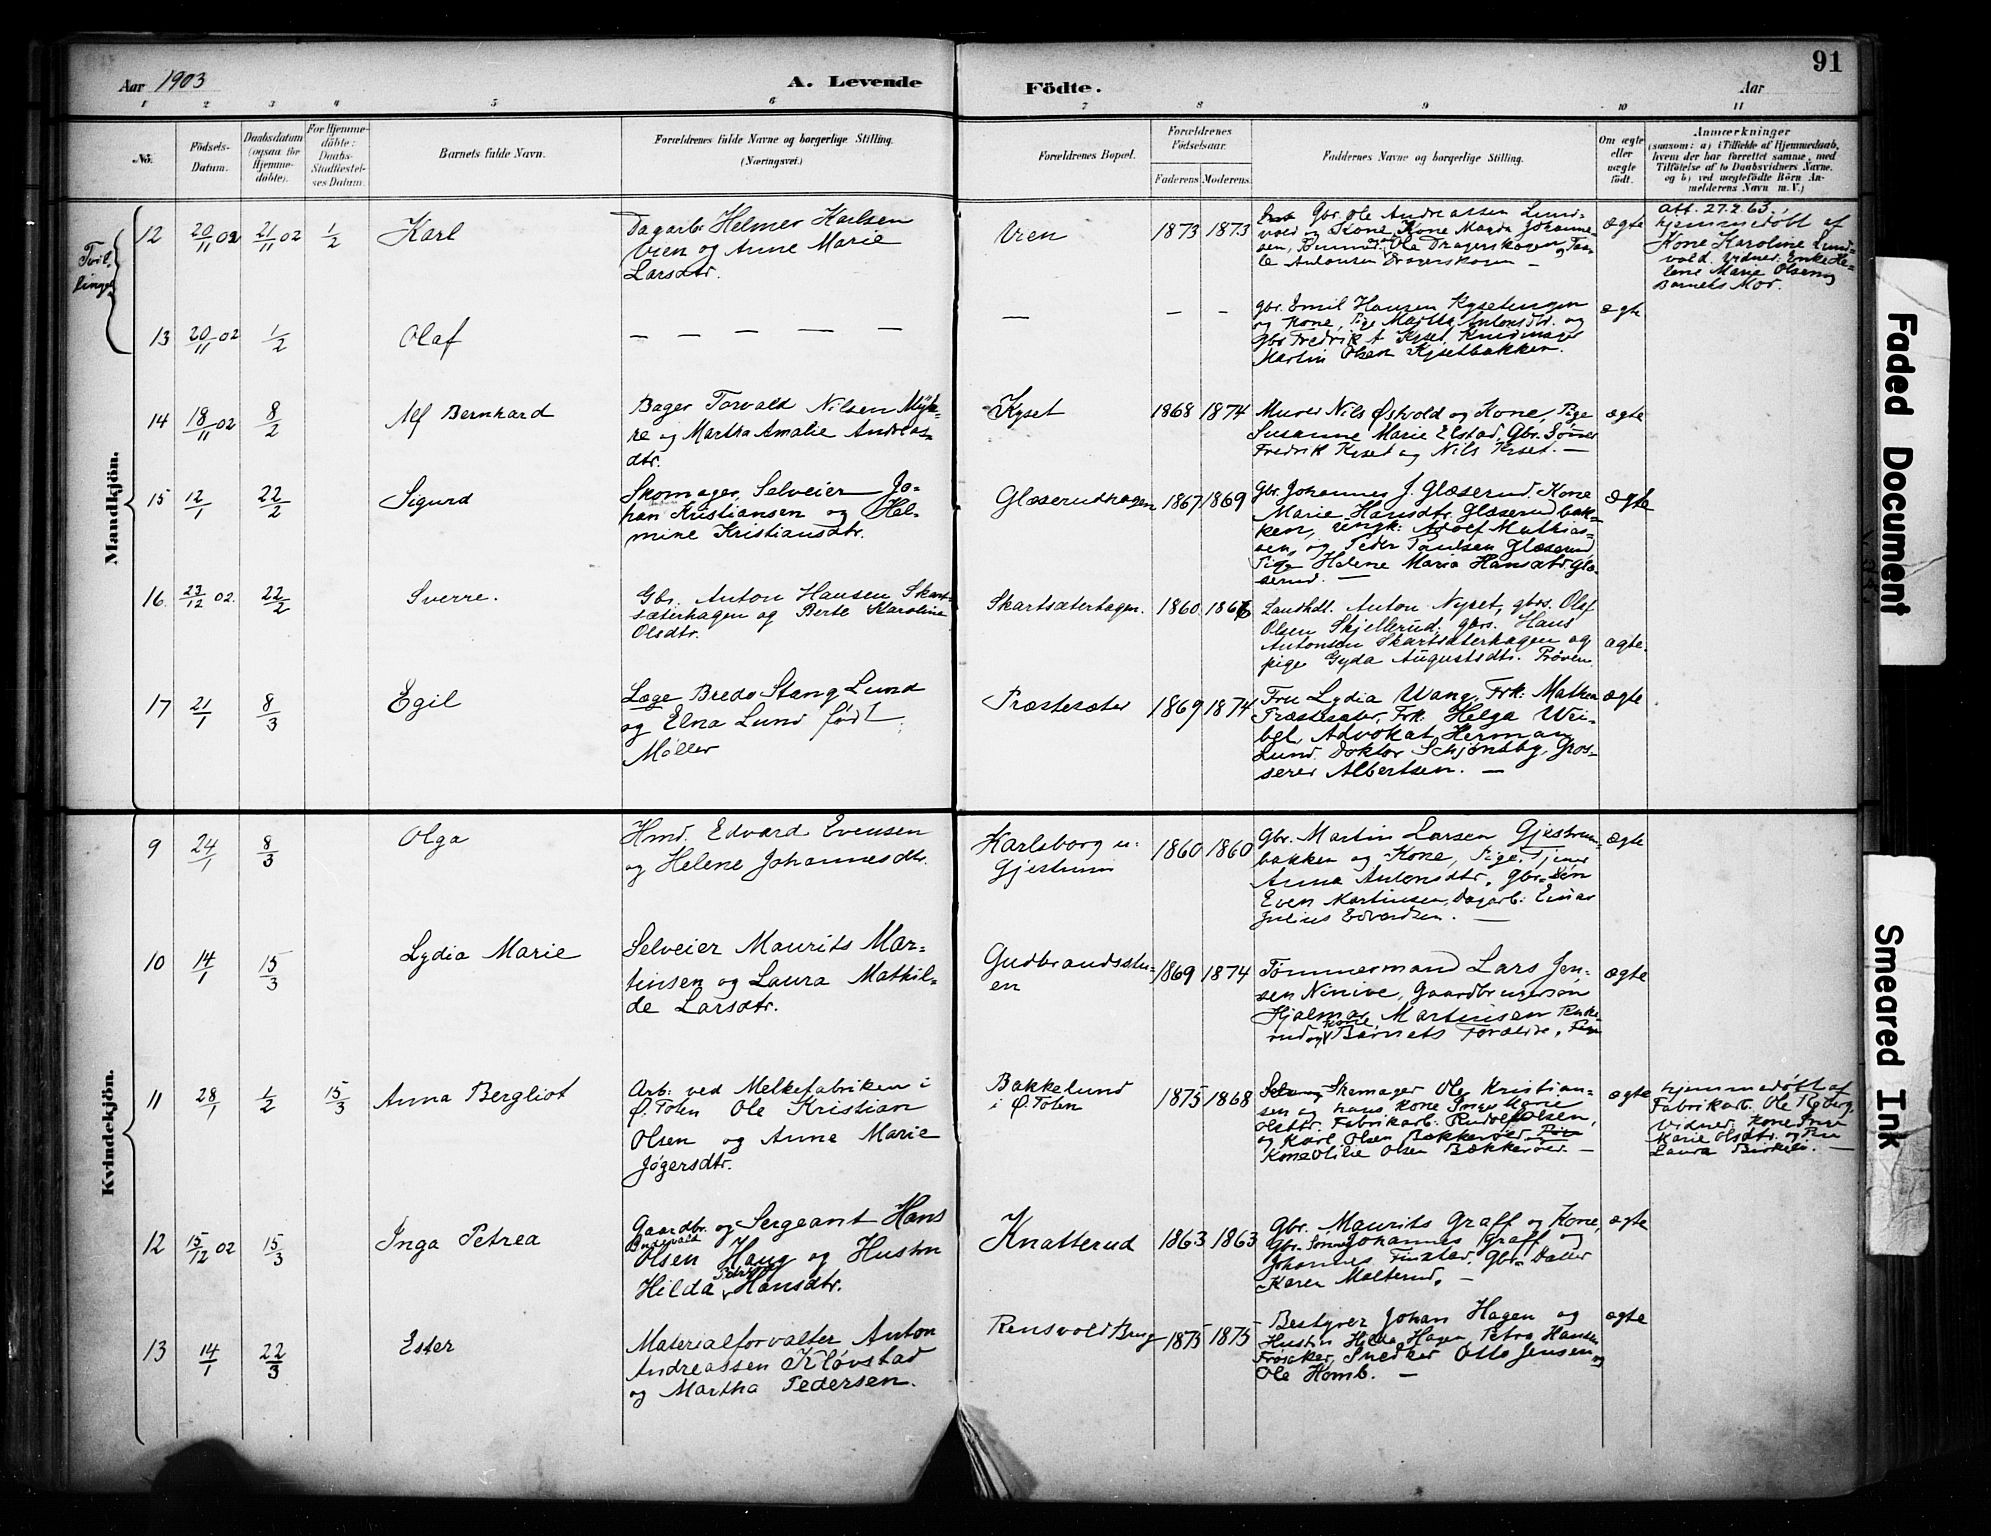 91
Aar 1903
A. Levende Födte.
Aar
1 2 3 4 5 6 7 8 9 10 11
No.
Födsels-Datum.
Daabsdatum (ogsaa for Hjemme-döbte).
For Hjemme-döbte: Daabs-Stadfæstelses Datum.
Barnets fulde Navn.
Forældrenes fulde Navne og borgerlige Stilling.
(Næringsvei.)
Forældrenes Bopæl.
Forældrenes Födselsaar.
Faderens Moderens
Faddernes Navne og borgerlige Stilling.
Om ægte eller uægte födt.
Anmærkninger
(saasom: a) i Tilfælde af Hjemmedaab,
hvem der har forrettet samme, med
Tilföielse af to Daabsvidners Navne.
og b) ved uægtefödte Börn An-
melderens Navn m. V.)
Mandkjön.
Tvil-
linger
12 20/11 02 21/11 02 1/2 Karl
Dagarb. Helmer Karlsen
Vren og Anne Marie
Larsdtr.
Vren 1873 1873
Gbr. Ole Andreassen Lund-
vold og Kone, Kone Magda Johanne-
sen, Ola Dragerskogen og
Antonsen Dragerskogen —
ægte
att. 27.2.63.
hjemmedøbt af
Kone Karoline Lund-
vold. Vidner: Enke He-
lene Marie Olsen og
Barnets Mor.
13 20/11 02 1/2 Olaf
— — — — —
— — —
gbr. Emil Hansen Kysetengen
og Kone, Pige Martha Antonsdtr. og
gbr. Fredrik A Kyset
Martin Olsen Kysetbakken.
ægte
14 18/11 02 8/2 Alf Bernhard
Bager Torvald Nilsen Myh-
re og Martha Amalie Andreas-
dtr.
Kyset 1868 1874
Murer Nils Østvold og Kone, Pige
Susanne Marie Elstad, Gbr. Sønner
Fredrik Kyset og Nils Kyset. —
ægte
15 12/1 22/2 Sigurd
Skomager, Selveier Jo-
han Kristiansen og Hel-
mine Kristiansdtr.
Glæserudhagen 1867 1869
Gbr. Johannes J. Glæserud. Kone
Marie Hansdtr. Glæserudbak-
ken, Ungk: Adolf Mathias-
sen, og Peder Paulsen Glæserud,
Pige Helene Maria Hansdtr Glæ-
serud. —
ægte
16 23/12 02. 22/2 Sverre.
Gbr. Anton Hansen Skart-
sæterhagen og Berte Karoline
Olsdtr.
Skartsæterhagen. 1860 1866
Landhdl. Anton Nyset, gbrs. Olaf
Olsen Skjellerud; gbrs. Hans
Antonsen Skartsæterhagen og
pige Gyda Augustsdtr. Prøven
ægte.
17 21/1 8/3 Egil
Læge Bredo Stang Lund
og Elna Lund født
Møller
Præstesæter 1869 1874
Fru Lydia Wang, Frk: Mathea
Præstesæter, Frk. Helga Wei-
bel, Advokat Herman
Lund, Doktor Schjønsby, Gros-
serer Albertsen. —
ægte
Kvindekjön.
9 24/1 8/3 Olga
Hmd. Edvard Evensen
og Helene Johannesdtr.
Karlsborg u.
Gjestrum
1860 1860
Gbr. Martin Larsen Gjestrum-
bakken og Kone, Pige, Tjener
Anna Antonsdtr. Gbr. Søn
Even Martinsen, Dagarb. Einar
Julius Edvardsen. —
ægte
10 14/1 15/3 Lydia Marie
Selveier Maurits Mar-
tinsen og Laura Mathil-
de Larsdtr.
Gudbrandsstu-
en
1869 1874
Tømmermand Lars Jen-
sen Ninive, Gaardbrugersøn
Hjalmar Martinsen
rud og Kone Barnets Forældre,
ægte
11 28/1 1/2 15/3 Anna Bergliot
Arb: ved Melkefabriken i
Ø. Toten Ole Kristian
Olsen og Anne Marie
Jøgersdtr.
Bakkelund
i Ø. Toten
1875 1868
Skomager Ole Kristian-
sen og hans Kone Inger Marie
Olsdtr. Fabrikarb. Rudolf Olsen,
og Karl Olsen
Kone Olilie Olsen —
ægte
hjemmedøbt af
Fabrikarb. Ole Ryberg,
Vidner, Kone
Marie Olsdtr. og
Laura —
12 15/12 02 15/3 Inga Petrea
Gaardbr. og Sergeant Hans
Olsen Haug og Hustru
Hilda Hansdtr.
Knatterud 1863 1863
Gbr. Maurits Graff og Kone,
Gbr. Sønner Johannes Graff og
Johannes Finstad. Gbr. Datter
Karen Malterud. —
ægte
13 14/1 22/3 Ester
Materialforvalter Anton
Andreassen Kløvstad
og Martha Pedersen.
Rensvold Brug 1875 1875
Bestyrer Johan Hagen og
Hustru Hilda Hagen, Petra Hansen
Frøsaker, Snedker Otto Jensen og
Ole Homb. —
ægte
Faded Document
Smeared Ink